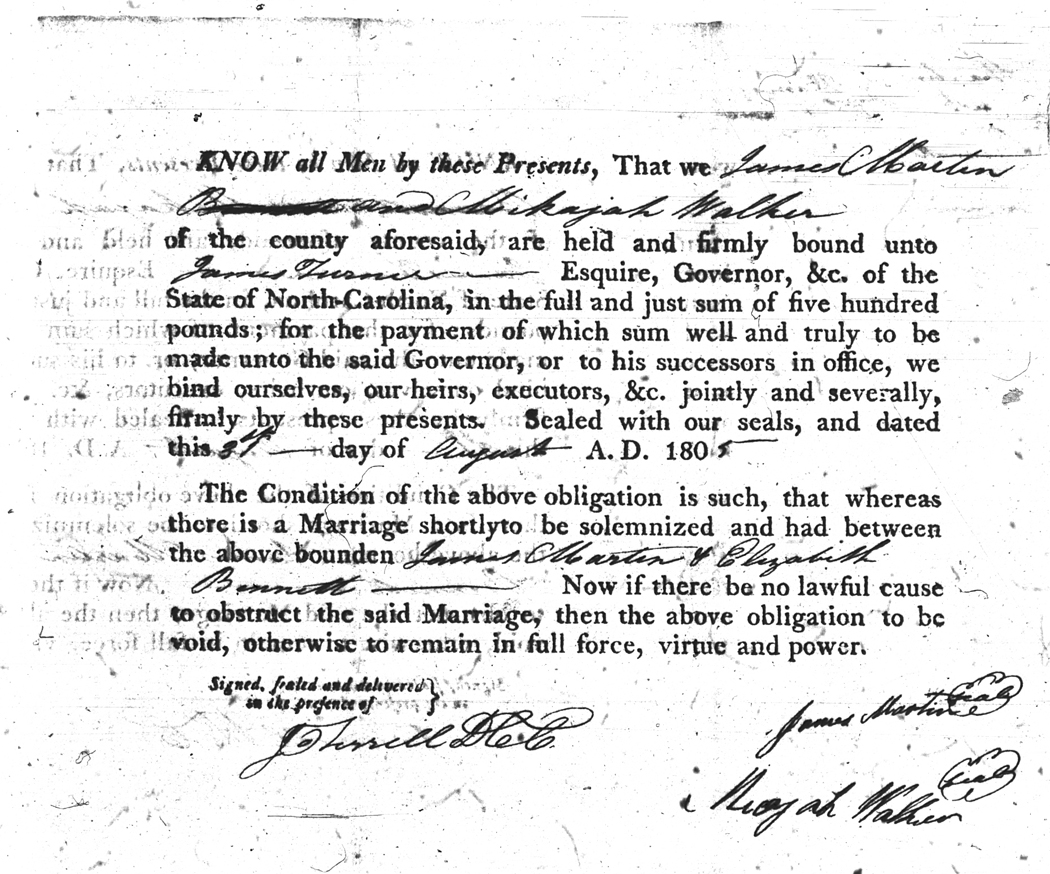 KNOW all Men by these Presents, That we James Martin
Bennett and Mikajah Walker
of the county aforesaid, are held and firmly bound unto
James Turner Esquire, Governor, &c. of the
State of North-Carolina, in the full and just sum of five hundred
pounds; for the payment of which sum well and truly to be
made unto the said Governor, or to his successors in office, we
bind ourselves, our heirs, executors, &c. jointly and severally,
firmly by these presents. Sealed with our seals, and dated
this day of August A. D. 1805
The Condition of the above obligation is such, that whereas
there is a Marriage shortlyto be solemnized and had between
the above bounden James Martin & Elizabeth
Bennett Now if there be no lawful cause
to obstruct the said Marriage, then the above obligation to be
void, otherwise to remain in full force, virtue and power.
Signed, sealed and delivered
in the presence of
J Terrell D C C
James Martin seal
Micajah Walker seal